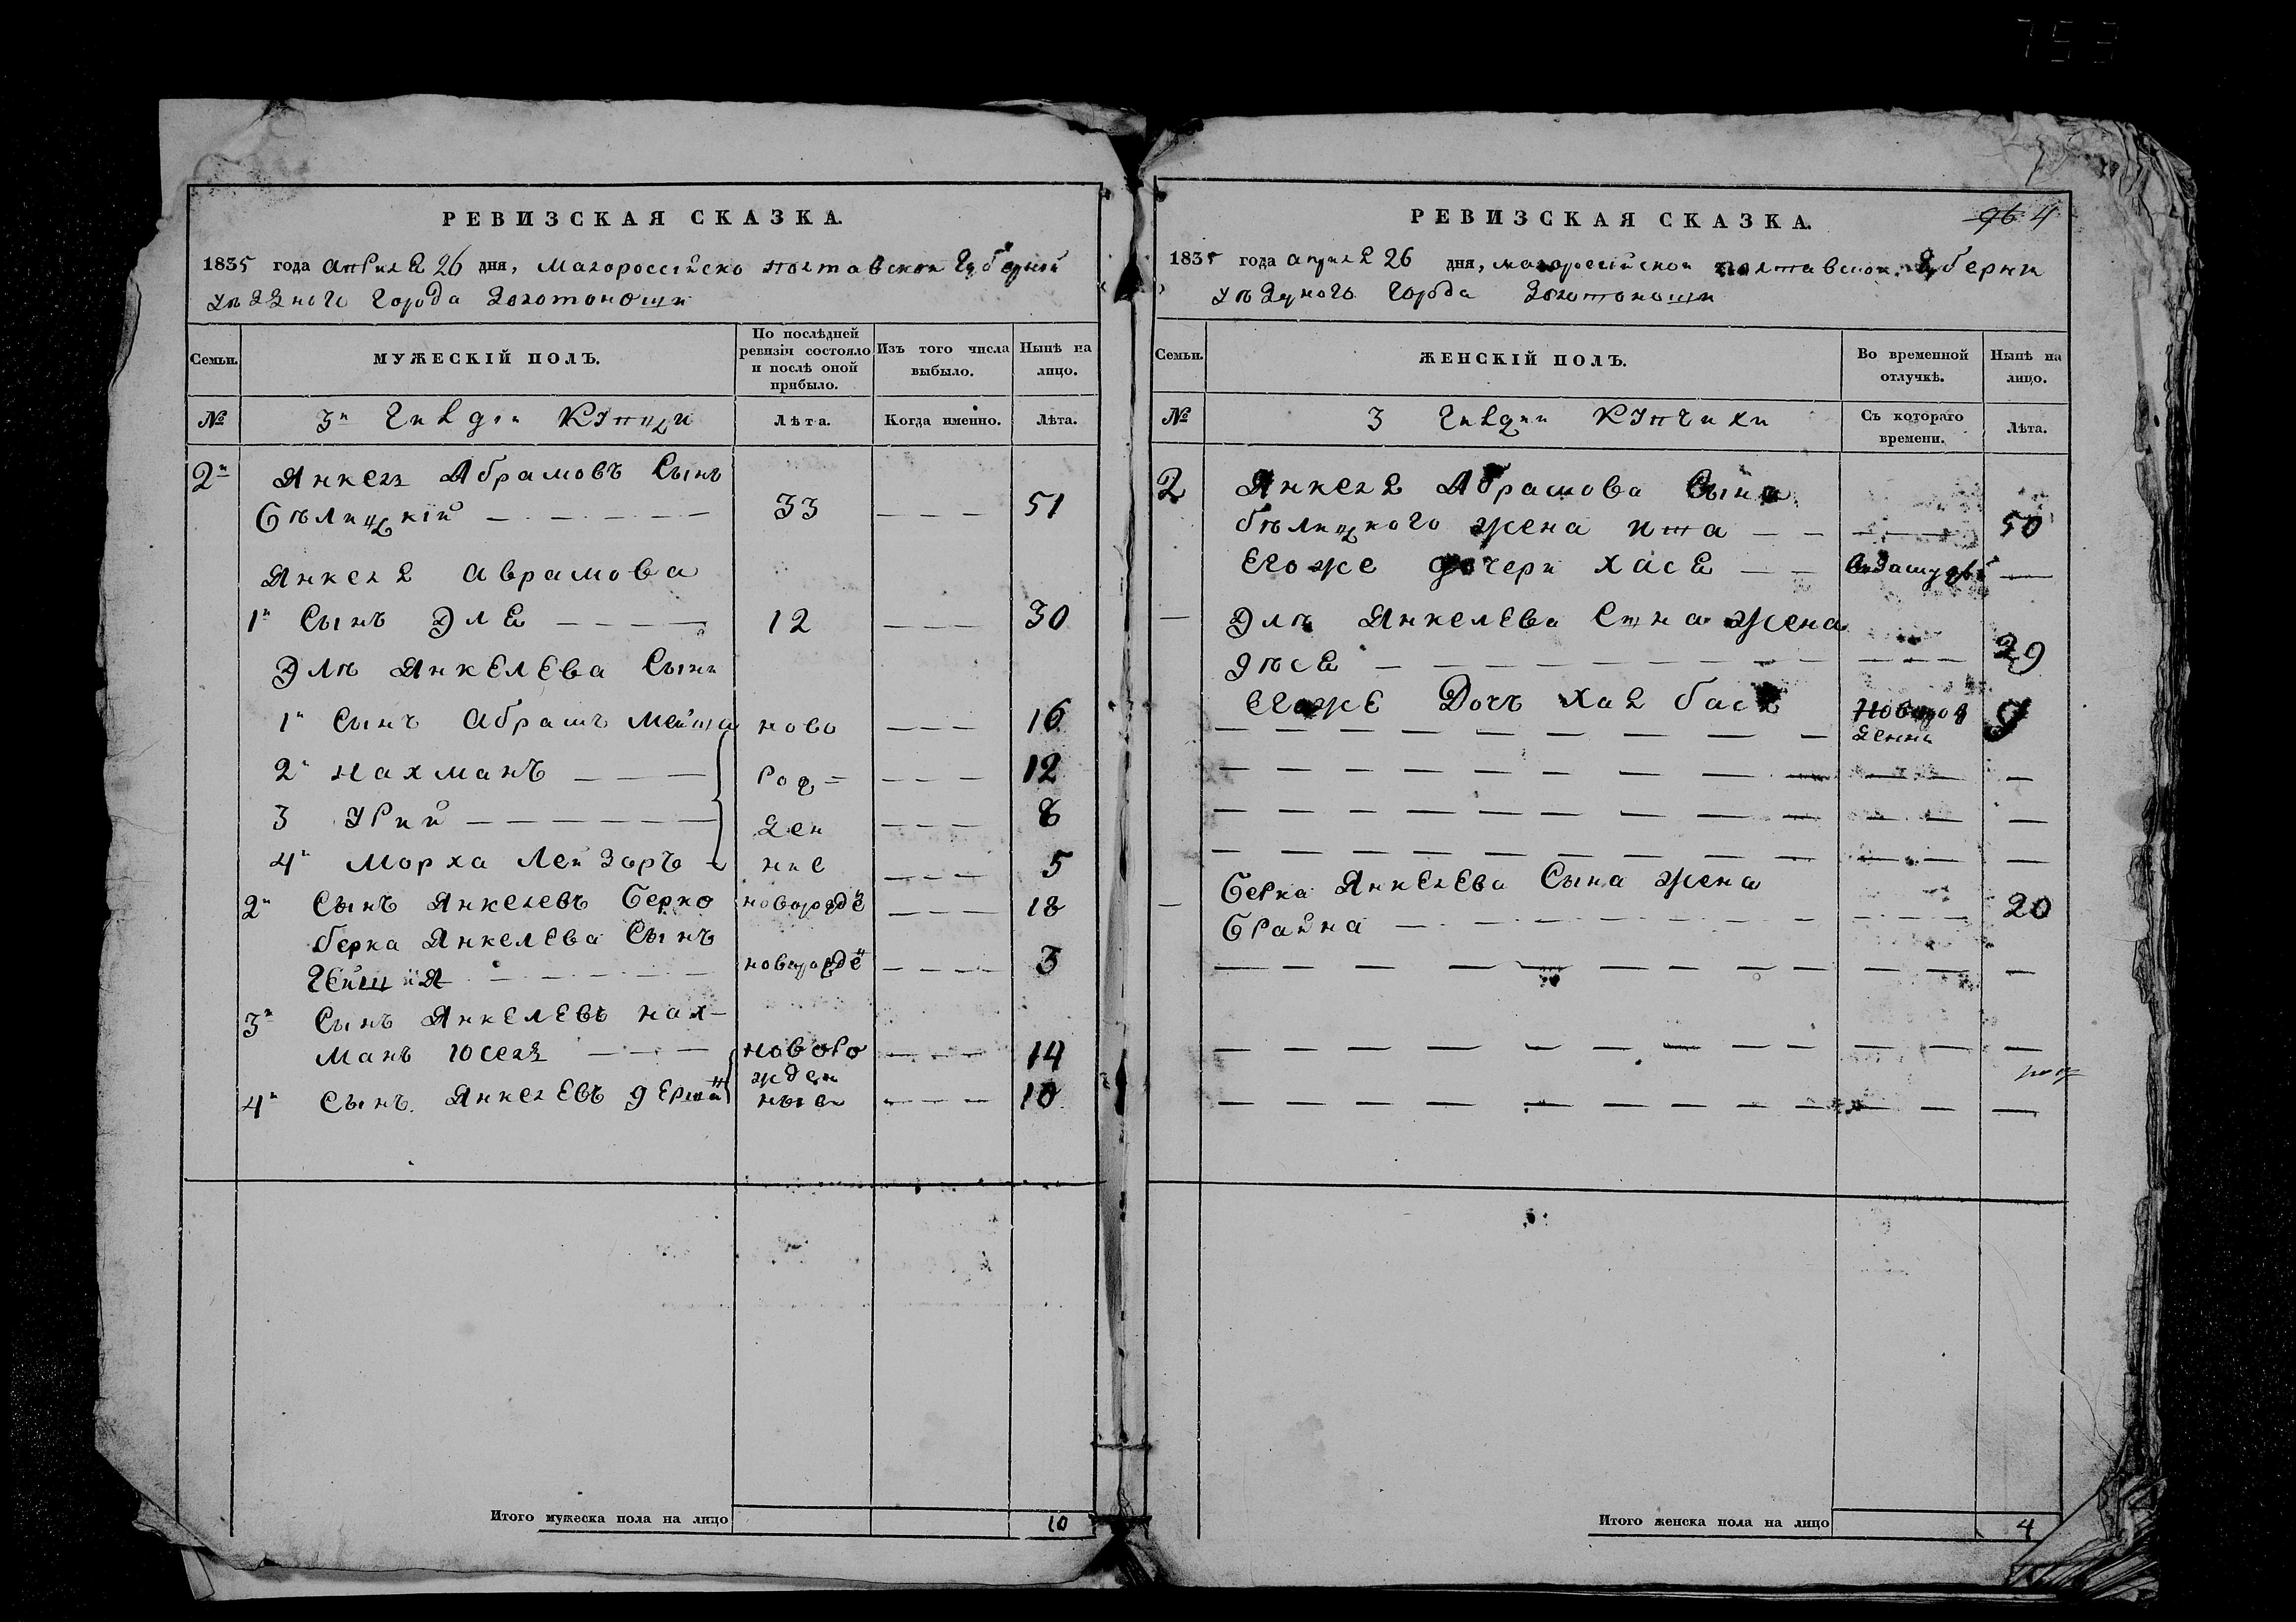 РЕВИЗСКАЯ СКАЗКА.
1835 года апреля 26 дня, Малороссійско полтавской Губерній
уѣздного Города Золотоноши
Семьи.
МУЖЕСКІЙ ПОЛЪ.
По послѣдней ревизіи состояло и послѣ оной прибыло.
Изъ того числа выбыло.
Нынѣ на лицо.
№
3й Гилдіи Купци
Лѣта.
Когда именно.
Лѣта.
2й Янкель Абрамовъ Сынъ
Бѣлицкій 33 51
Янкеля Аврамова
1й Сынъ Эля 12 30
Элѣ Янкелева Сына
1й Сынъ Абрамъ Мейша ново 16
2й Нахманъ рож 12
3 Урий ден 8
4й Морха Лейзоръ ніе 5
2й Сынъ Янкелевъ Берко новорожде 18
берка Янкелева Сынъ
новорожде 3
3й Сынъ Янкелевъ нах-
манъ Юсель новоро 14
жден
4й Сынъ Янкелевъ ные 10
Итого мужеска пола на лицо 10
РЕВИЗСКАЯ СКАЗКА.
96 4
1835 года апреля 26 дня, малоросійской полтавской Губерни
уѣздного города Золотоноши
Семьи.
ЖЕНСКІЙ ПОЛЪ.
Во временной отлучкѣ.
Нынѣ на лицо.
№
3 Гилдии Купчихи
Съ котораго времени.
Лѣта.
2 Янкеля Абрамова Сына
бѣлицкого жена Ита 50
Егоже дочери Хася
Элѣ Янкелева Сина Жена
Эѣся 29
Егоже Дочъ Хая бася новорож 9
денна
Берка Янкелева Сына жена
Брайна 20
Итого женска пола на лицо 4